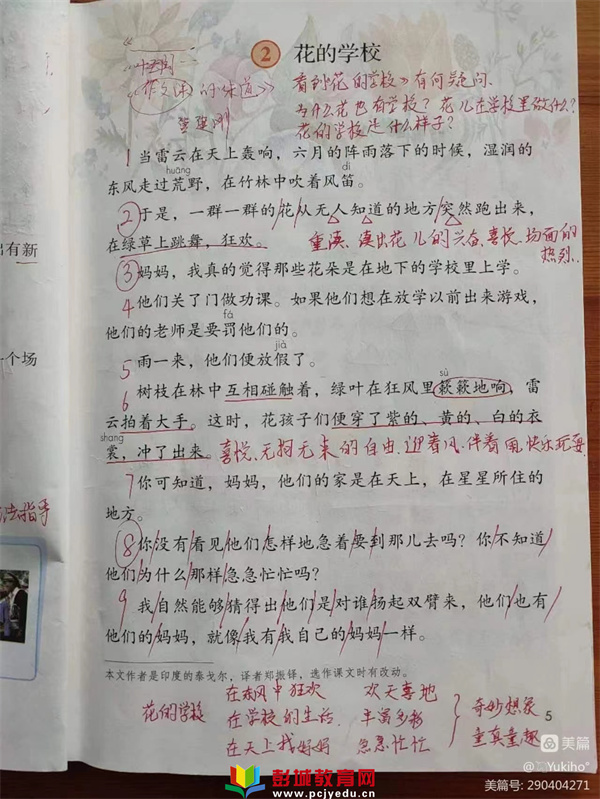 2 花的学校
看到《花的学校》有何疑问.
的味道》
为什么花也有学校? 花儿在学校里做什么?
花的学校是什么样子?
1 当雷云在天上轰响，六月的阵雨落下的时候，湿润的
huāng dí
东风走过荒野，在竹林中吹着风笛。
2 于是，一群一群的花从无人知道的地方突然跑出来，
在绿草上跳舞，狂欢。
重读、读出花儿的兴奋、喜悦、场面的
热烈.
出有新
3 妈妈，我真的觉得那些花朵是在地下的学校里上学。
4 他们关了门做功课。如果他们想在放学以前出来游戏，
fá
他们的老师是要罚他们的。
jià
5 雨一来，他们便放假了。
一个场
sù
6 树枝在林中互相碰触着，绿叶在狂风里簌簌地响，雷
云拍着大手。这时，花孩子们便穿了紫的、黄的、白的衣
shang
裳，冲了出来。
喜悦、无拘无束的自由.迎着风.伴着雨.快乐玩耍
7 你可知道，妈妈，他们的家是在天上，在星星所住的
地方。
法指导
8 你没有看见他们怎样地急着要到那儿去吗？你不知道
他们为什么那样急急忙忙吗？
9 我自然能够猜得出他们是对谁扬起双臂来，他们也有
他们的妈妈，就像我有我自己的妈妈一样。
本文作者是印度的泰戈尔，译者郑振铎，选作课文时有改动。
花的学校
在东风中狂欢 欢天喜地
在学校的生活 丰富多彩
在天上找妈妈 急急忙忙
奇妙想象
童真童趣
5
彭城教育网
www.pcjyedu.cn
美篇
美篇号: 290404271